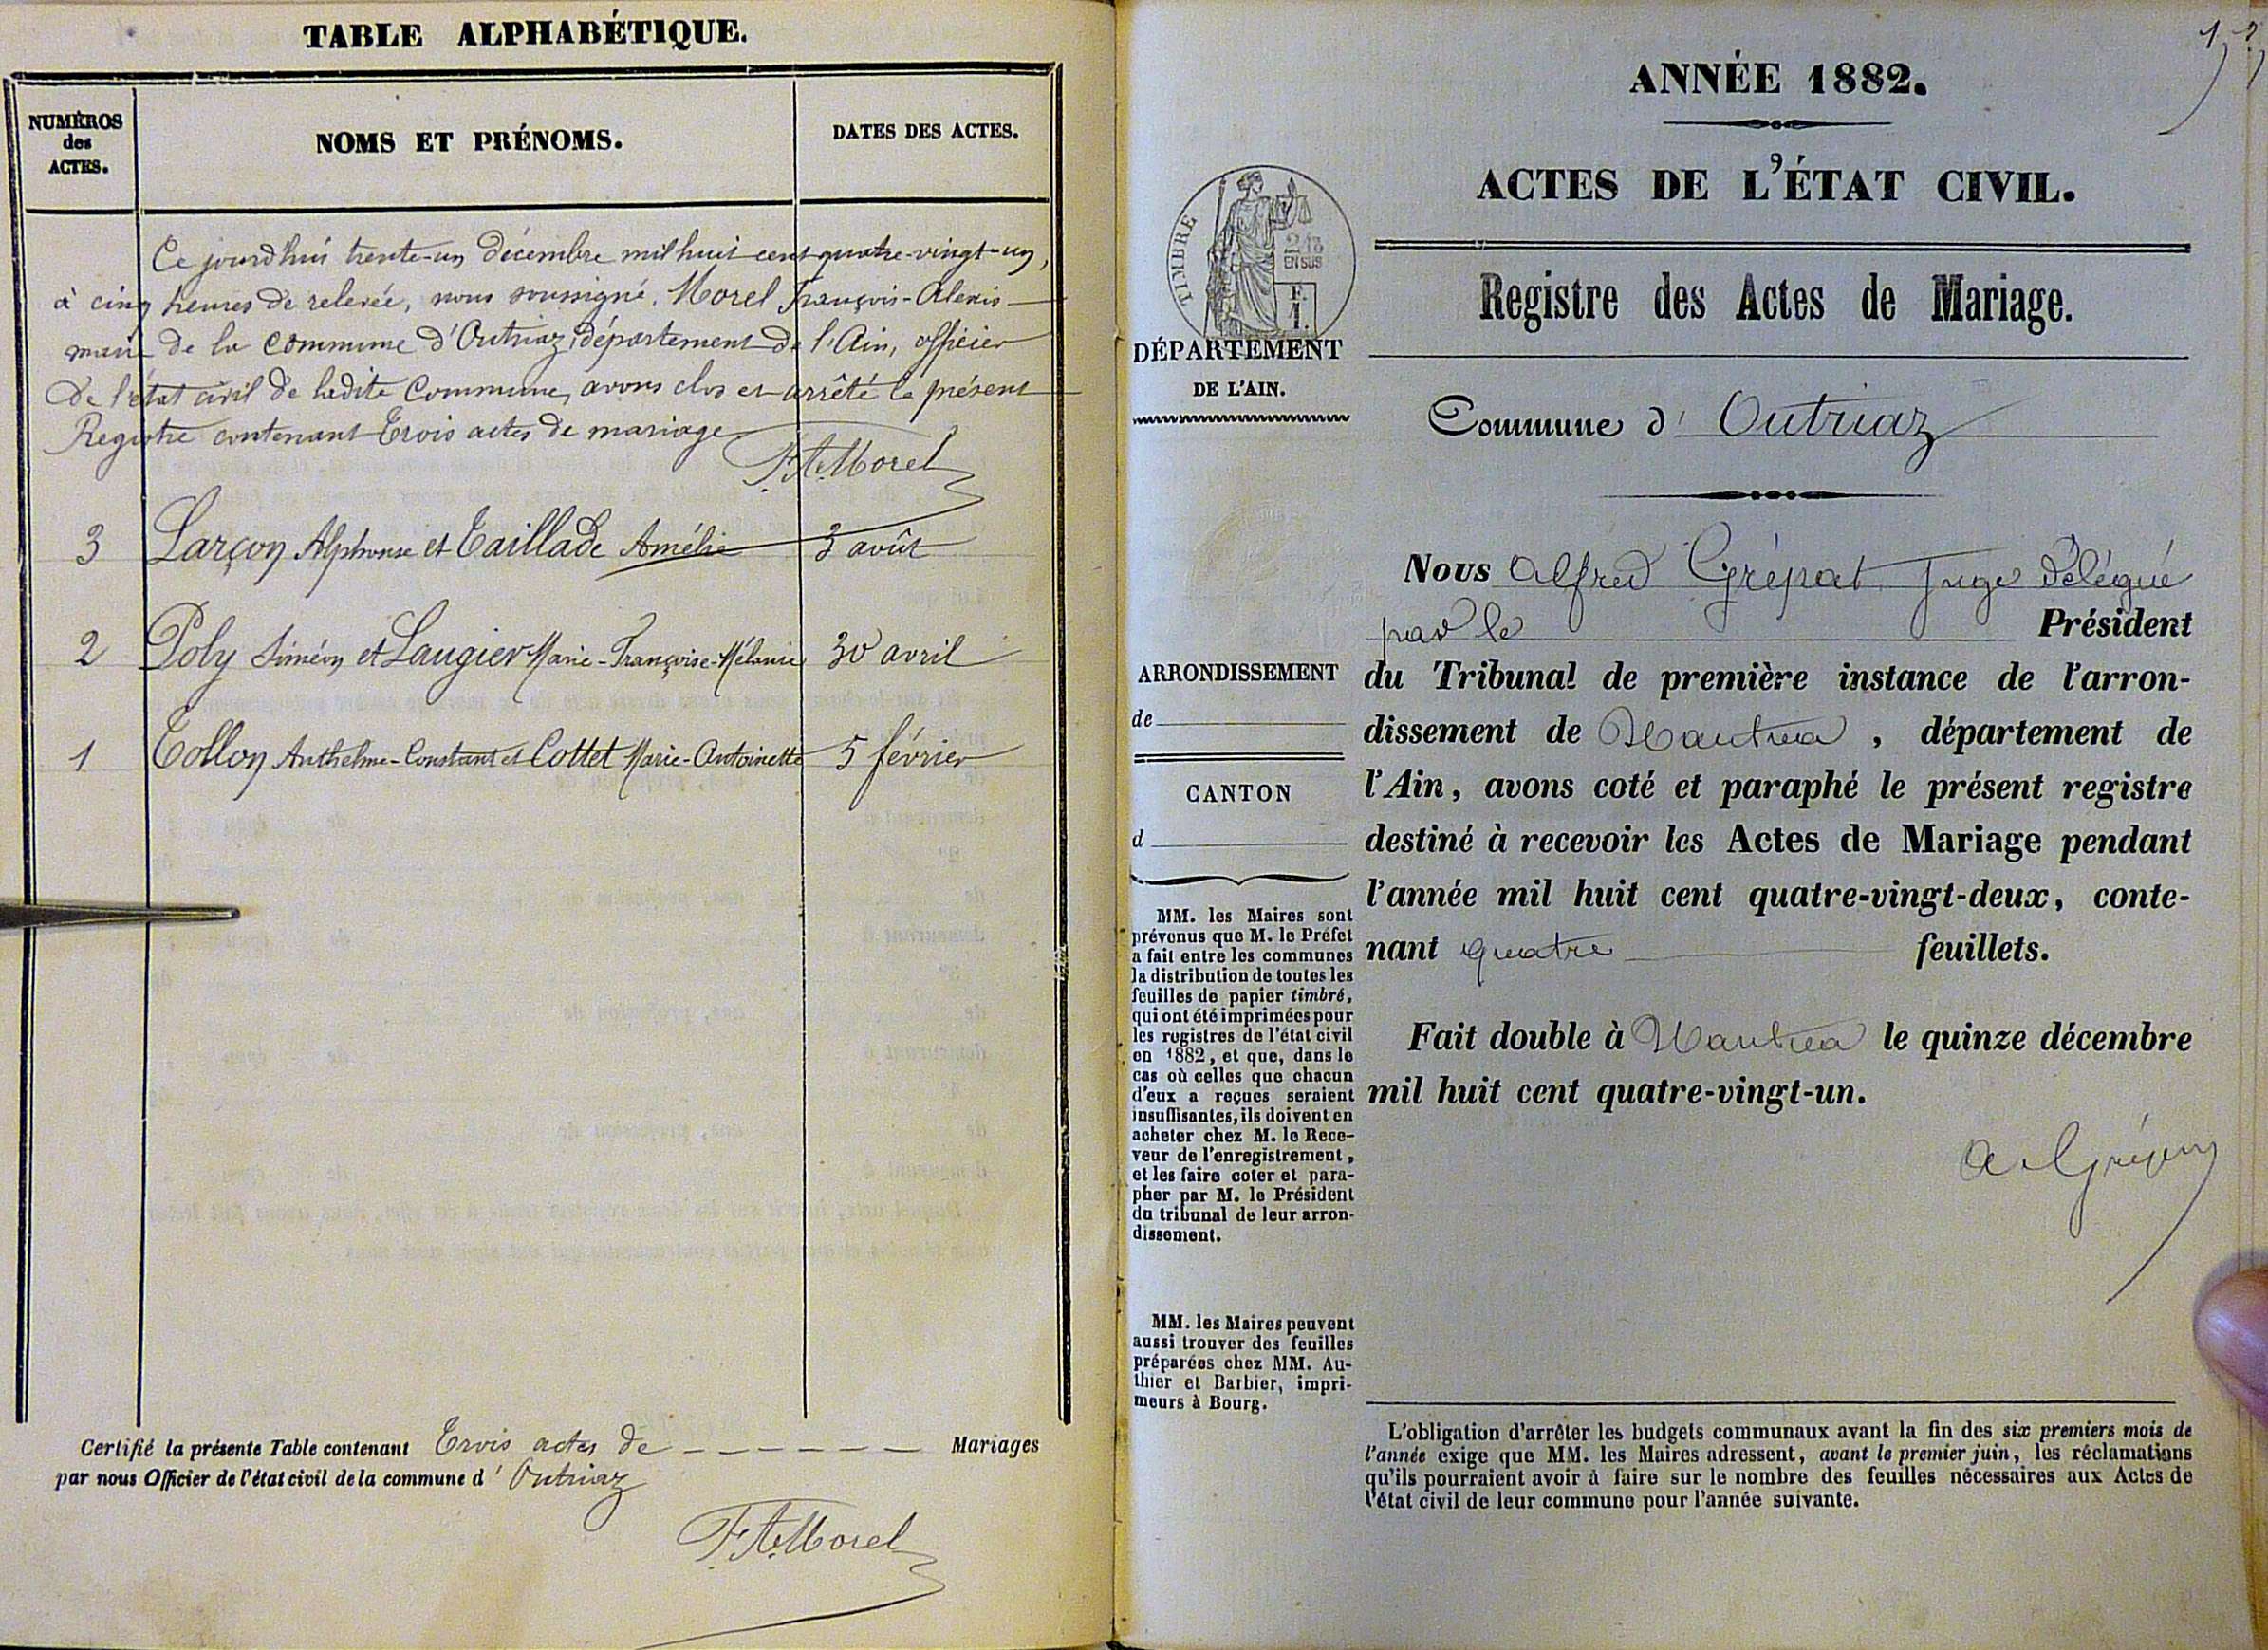 TABLE ALPHABÉTIQUE.
NUMÉROS
des
ACTES.
NOMS ET PRÉNOMS.
DATES DES ACTES.
Ce jourd'hui trente-un décembre mil huit cent quatre-vingt-un,
à cinq heures de relevée, nous soussigné, Morel François-Alexis
maire de la commune d'Outriaz, département de l'Ain, officier
De l'état civil de ladite Commune, avons clos et arrêté le présent
Registre contenant Trois actes de mariage
F. A. Morel
3 Larçon Alphonse et Taillade Amélie 3 août
2 Poly Siméon et Laugier Marie-Françoise-Mélanie 30 avril
1 Tollon Anthelme-Constant et Cottet Marie-Antoinette 5 février
Certifié la présente Table contenant Trois actes de Mariages
par nous Officier de l'état civil de la commune d' Outriaz
F. A. Morel
ANNÉE 1882.
ACTES DE L'ÉTAT CIVIL.
TIMBRE
2/10
EN SUS
F.
1.
DÉPARTEMENT
DE L'AIN.
Registre des Actes de Mariage.
Commune d' Outriaz
ARRONDISSEMENT
de
CANTON
d
MM. les Maires sont
prévenus que M. le Préfet
a fait entre les communes
la distribution de toutes les
feuilles de papier timbré,
qui ont été imprimées pour
les registres de l'état civil
en 1882, et que, dans le
cas où celles que chacun
d'eux a reçues seraient
insuffisantes, ils doivent en
acheter chez M. le Rece-
veur de l'enregistrement,
et les faire coter et para-
pher par M. le Président
du tribunal de leur arron-
dissement.
MM. les Maires peuvent
aussi trouver des feuilles
préparées chez MM. Au-
thier et Barbier, impri-
meurs à Bourg.
Nous Alfred Grépat Juge Délégué
par le Président
du Tribunal de première instance de l'arron-
dissement de Nantua, département de
l'Ain, avons coté et paraphé le présent registre
destiné à recevoir les Actes de Mariage pendant
l'année mil huit cent quatre-vingt-deux, conte-
nant quatre feuillets.
Fait double à Nantua le quinze décembre
mil huit cent quatre-vingt-un.
L'obligation d'arrêter les budgets communaux avant la fin des six premiers mois de
l'année exige que MM. les Maires adressent, avant le premier juin, les réclamations
qu'ils pourraient avoir à faire sur le nombre des feuilles nécessaires aux Actes de
l'état civil de leur commune pour l'année suivante.